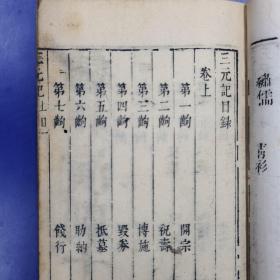 繡儒 青衫
三元記目錄
卷上
第一齣 開宗
第二齣 祝壽
第三齣 博施
第四齣 毀券
第五齣 抵墓
第六齣 助納
第七齣 餞行